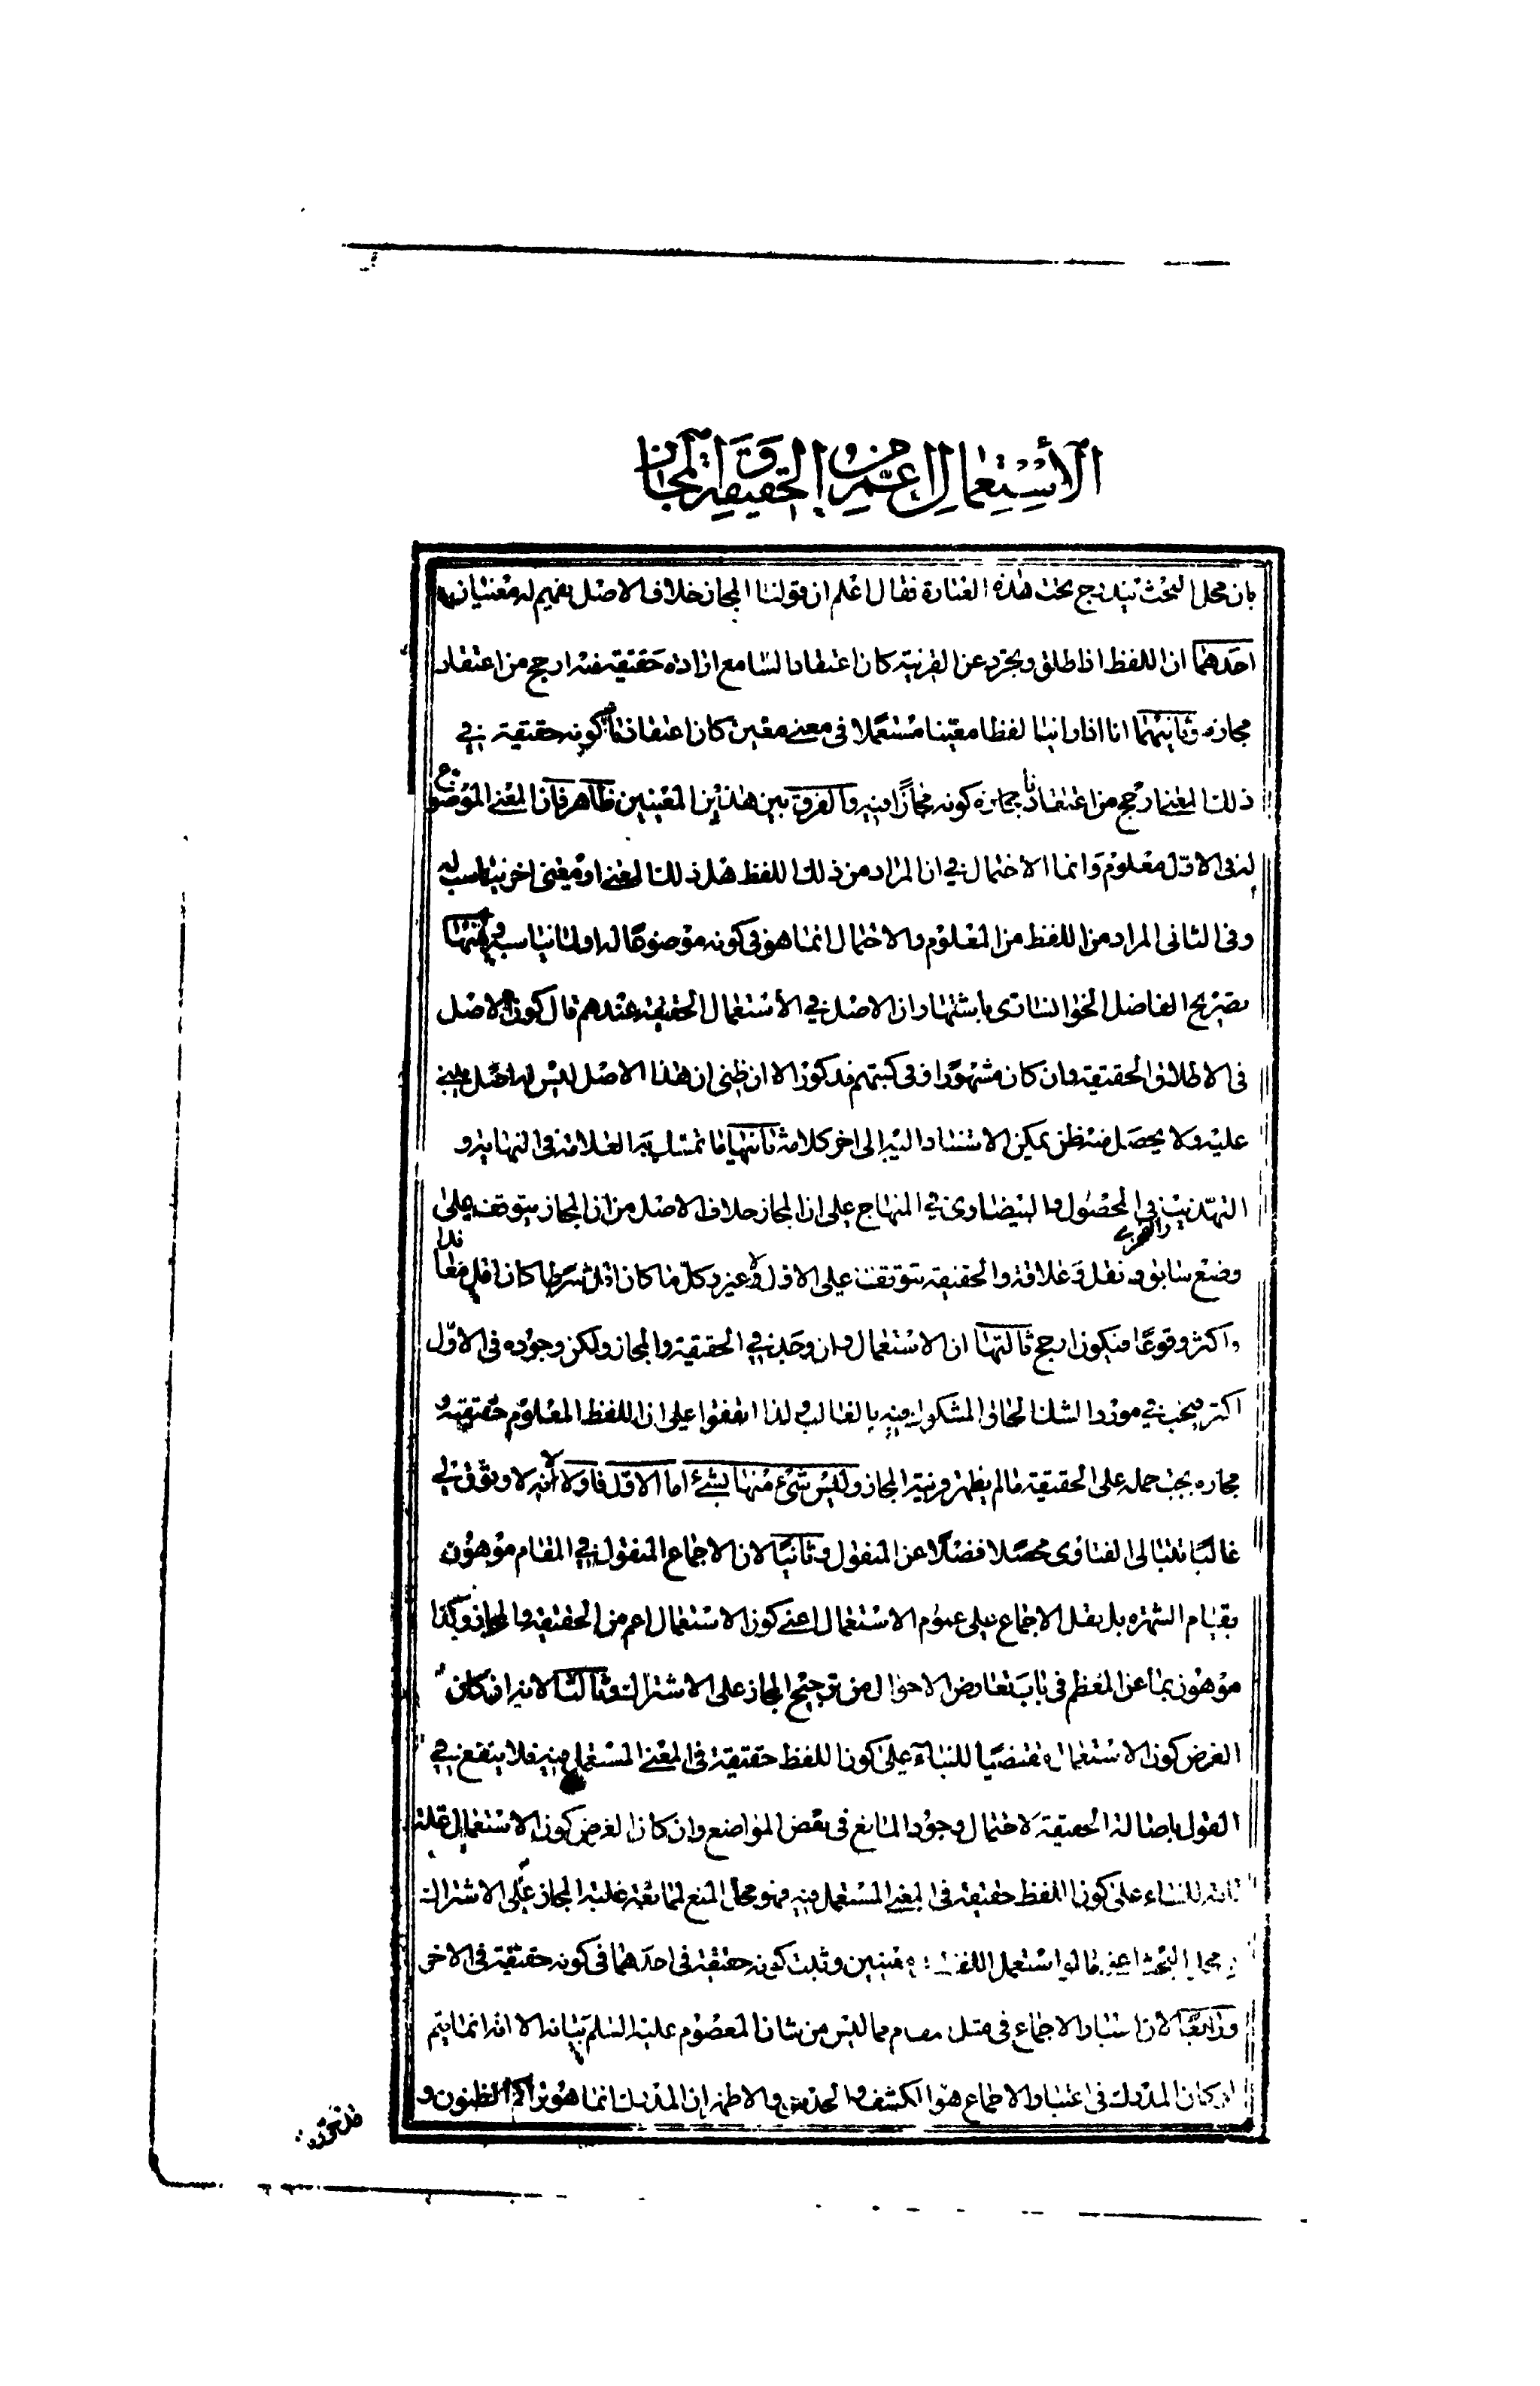 الاستعمال اعم من الحقيقة و المجاز
بان محل البحث يندرج تحت هذه العبارة فقال اعلم ان قولنا المجاز خلاف الاصل يفهم له معنيان
احدهما ان اللفظ اذا طلق و تجرد عن القرنية كان اعتقاد السامع ارادة حقيقة منه ارجح من اعتقاد
مجازه و ثانيهما انا اذا راينا لفظا معينا مستعملا فى معنى معين كان اعتقادنا كونه حقيقة فى
ذلك المعنى ارجح من اعتقادنا كونه مجازا فيه و الفرق بين هذين المعنيين ظاهر فان المعنى الموضوع
له فى الاول معلوم و انما الاحتمال فى ان المراد من ذلك اللفظ هل ذلك المعنى او معنى اخر يناسب له
و فى الثانى المراد من اللفظ من المعلوم و الاحتمال انما هو فى كونه موضوعا له او لما يناسبه و منها
تصريح الفاضل الخوانسارى باشتهار ان الاصل فى الأستعمال الحقيقة عندهم قال كون الاصل
فى الاطلاق الحقيقة و ان كان مشهورا و فى كتبهم مذكورا الا ان ظنى ان هذا الاصل ليس له اصل يبنى
عليه و لا يحصل منه ظن يمكن الاستناد اليه الى اخر كلامه ثانيها ما تمسك به العلامة فى النهاية و
التهذيب و الرازى فى المحصول و البيضاوى فى المنهاج على ان المجاز خلاف الاصل من ان المجاز يتوقف على
وضع سابق و نقل و علاقة و الحقيقة تتوقف على الاول لا غير و كل ما كان اقل شرطا كان اقل معاندا
و اكثر وقوعا فيكون ارجح ثالثها ان الاستعمال و ان وجد فى الحقيقة و المجاز ولكن وجوده فى الاول
اكثر فيجب فى مورد الشك الحاق المشكوك فيه بالغالب و لذا اتفقوا على ان اللفظ المعلوم حقيقته و
مجازه يجب حمله على الحقيقة ما لم يظهر قرنية المجاز و ليس شىء منها بشئ اما الاول فاولا لانه لا وثوق لى
غالبا بنا الى الفتاوى محصلا فضلا عن المنقول و ثانيا لان الاجماع المنقول فى المقام موهون
بقيام الشهرة بل بنقل الاجماع على عموم الاستعمال اعنى كون الاستعمال اعم من الحقيقة و المجاز و كذا
موهون بما عن المعظم فى باب تعارض الاحوال من ترجيح المجاز على الاشتراك و ثالثا لانه ان كان
الغرض كون الاستعمال مقتضيا للبناء على كون اللفظ حقيقة فى المعنى المستعمل فيه فلا ينفع فى
القول باصالة الحقيقة لاحتمال وجود المانع فى بعض المواضع و ان كان الغرض كون الاستعمال علة
تامة للبناء على كون اللفظ حقيقة فى المعنى المستعمل فيه فهو محل المنع لممانعة غلبة المجاز على الاشتراك
فى محل البحث اعنى ما لو استعمل اللفظ فى معنيين و ثبت كونه حقيقة فى احدهما فى كونه حقيقة فى الاخر
و رابعا لان اعتبار الاجماع فى مثل مقام مما ليس من شان المعصوم عليه السلم بيانه الا انه انما يتم
لو كان المدرك فى اعتبار الاجماع هو الكشف و الحدس و الاظهر ان المدرك انما هو تراكم الظنون و